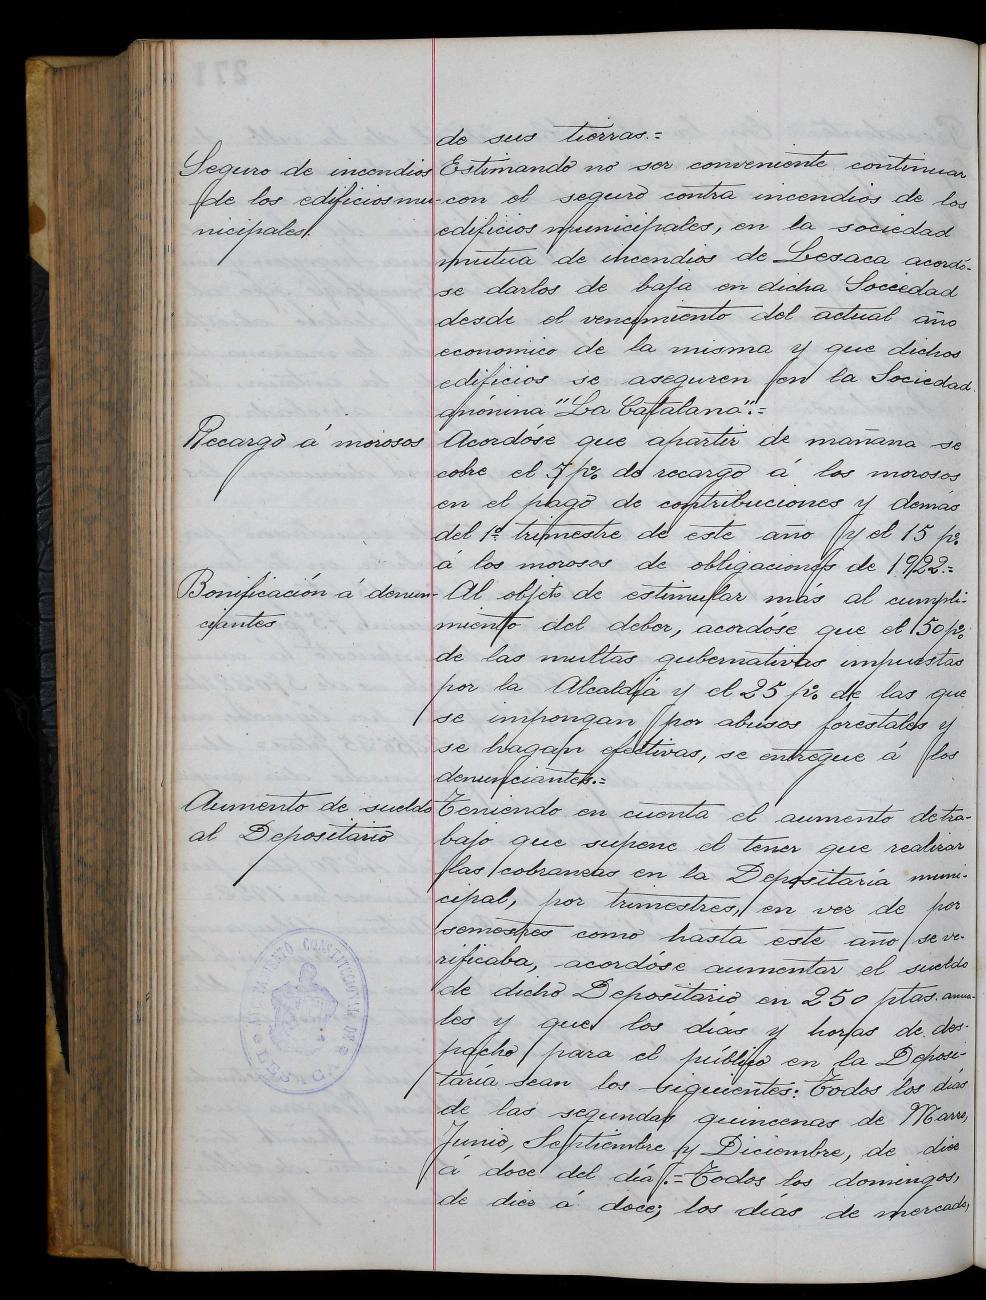 de sus tierras.=
Seguro de incendios
de los edificios mu-
nicipales.
Estimando no ser conveniente continuar
con el seguro contra incendios de los
edificios municipales, en la sociedad
mutua de incendios de Lesaca acordó-
se darlos de baja en dicha Sociedad
desde el vencimiento del actual año
economico de la misma y que dichos
edificios se aseguren en la Sociedad
anónima "La Catalana".=
Recargo á morosos
Acordóse que apartir de mañana se
cobre el 7 p% de recargo á los morosos
en el pago de contribuciones y demás
del 1º trimestre de este año y el 15 p%
á los morosos de obligaciones de 1922.=
Bonificación á denun-
ciantes
Al objeto de estimular más al cumpli-
miento del deber, acordóse que el 50 p%
de las multas gubernativas impuestas
por la Alcaldía y el 25 p% de las que
se impongan por abusos forestales y
se hagan efectivas, se entregue á los
denunciantes.=
Aumento de sueldo
al Depositario
Teniendo en cuenta el aumento de tra-
bajo que supone el tener que realizar
las cobranzas en la Depositaría muni-
cipal, por trimestres, en vez de por
semestres como hasta este año se ve-
rificaba, acordóse aumentar el sueldo
de dicho Depositario en 250 ptas. anua-
les y que los días y horas de des-
pacho para el público en la Deposi-
taría sean los siguientes: Todos los días
de las segundas quincenas de Marzo,
Junio, Septiembre y Diciembre, de diez
á doce del día.= Todos los domingos,
de diez á doce; los días de mercado,
AYUNTAMIENTO CONSTITUCIONAL DE
LESACA